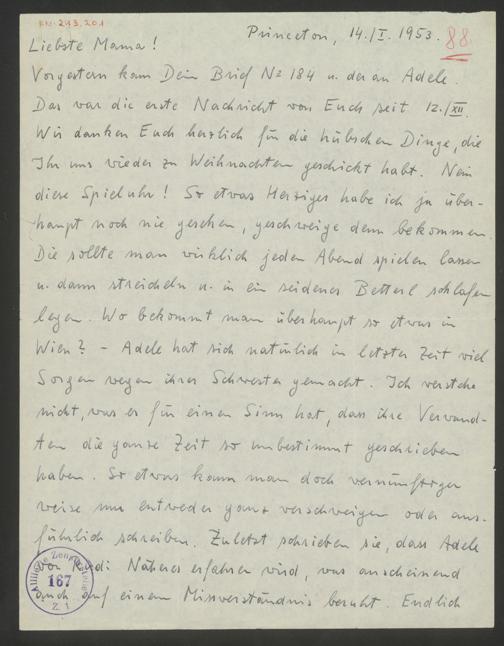 HN-293.201
Princeton, 14./I. 1953.
88
Liebste Mama!
Vorgestern kam Dein Brief No 184 u. der an Adele.
Das war die erste Nachricht von Euch seit 12./XII.
Wir danken Euch herzlich für die hübschen Dinge, die
Ihr uns wieder zu Weihnachten geschickt habt. Nein
diese Spieluhr! So etwas Herziges habe ich ja über-
haupt noch nie gesehen, geschweige denn bekommen
Die sollte man wirklich jeden Abend spielen lassen
u. dann streicheln u. in ein seidenes Betterl schlafen
legen. Wo bekommt man überhaupt so etwas in
Wien? – Adele hat sich natürlich in letzter Zeit viel
Sorgen wegen ihrer Schwester gemacht. Ich verstehe
nicht, was es für einen Sinn hat, dass ihre Verwand-
ten die ganze Zeit so unbestimmt geschrieben
haben. So etwas kann man doch vernünftiger
weise nur entweder ganz verschweigen oder aus-
führlich schreiben. Zuletzt schrieben sie, dass Adele
von Näheres erfahren wird, was anscheinend
auch auf einem Missverständnis beruht. Endlich
167
Z. 1